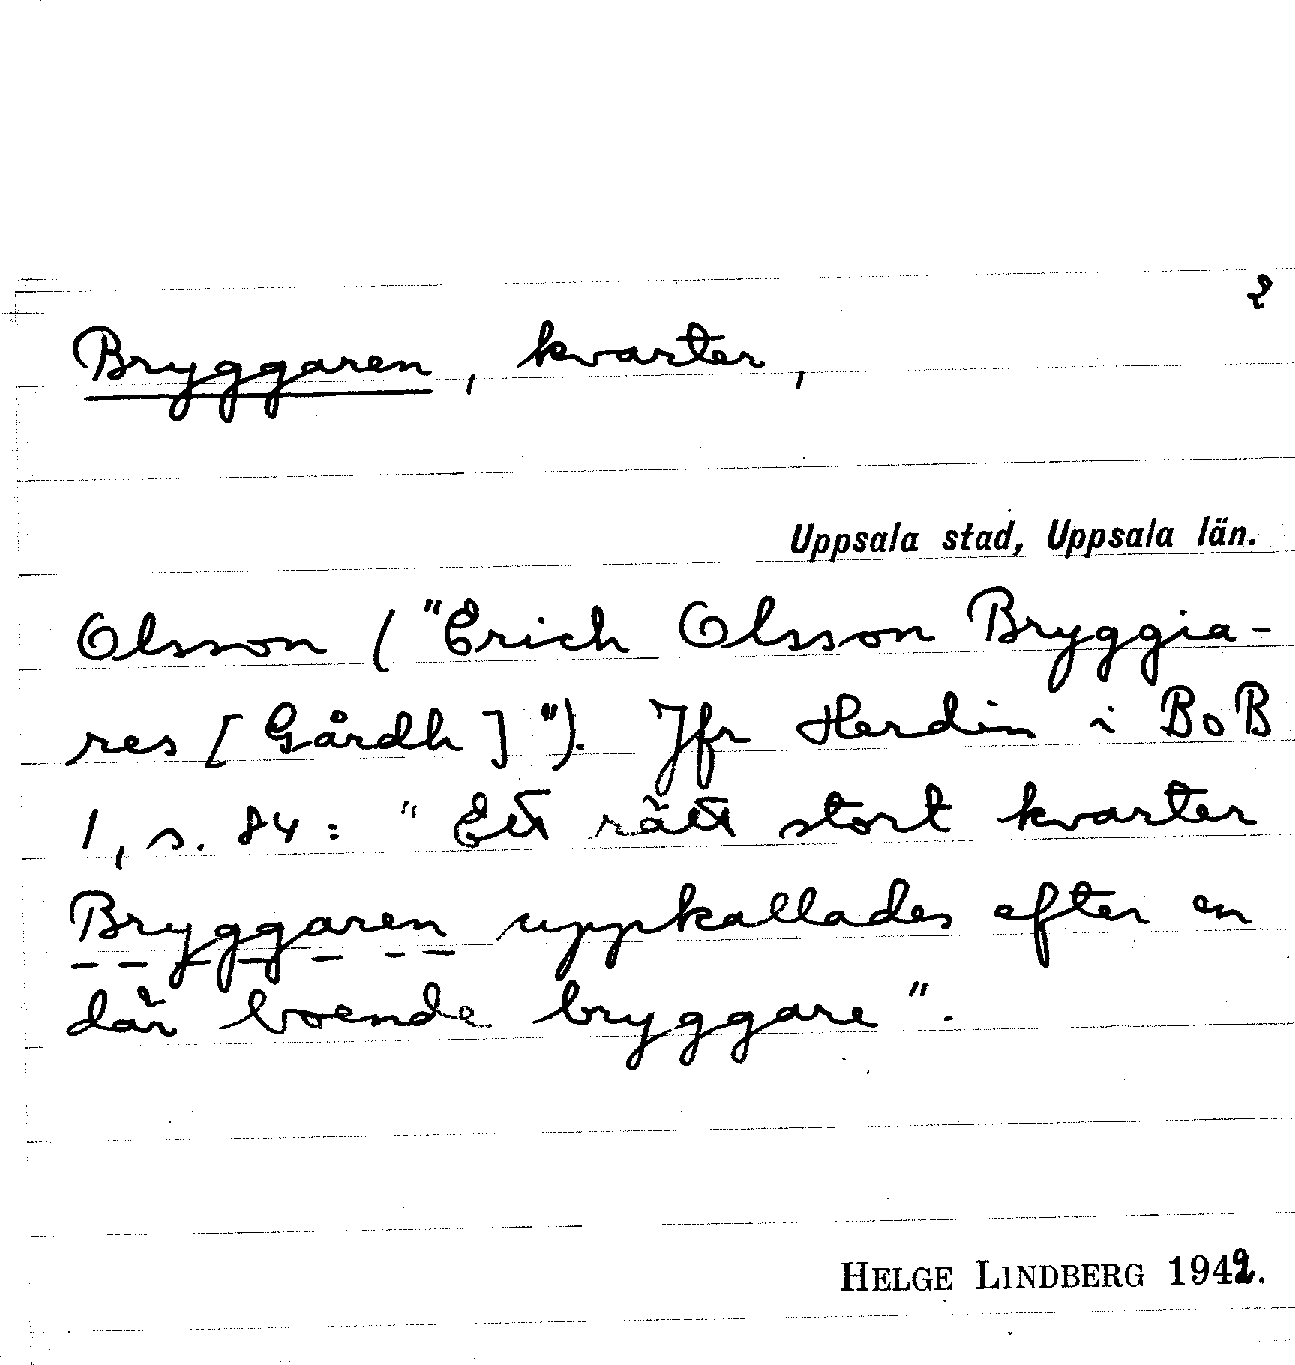 2
Bryggaren, kvarter,
Uppsala stad, Uppsala län.
Olsson ("Erich Olsson Bryggia-
res [Gårdh]"). Jfr Herdin i BoB
1, s. 84: "Ett rätt stort kvarter
Bryggaren uppkallades efter en
där boende bryggare".
HELGE LINDBERG 1942.